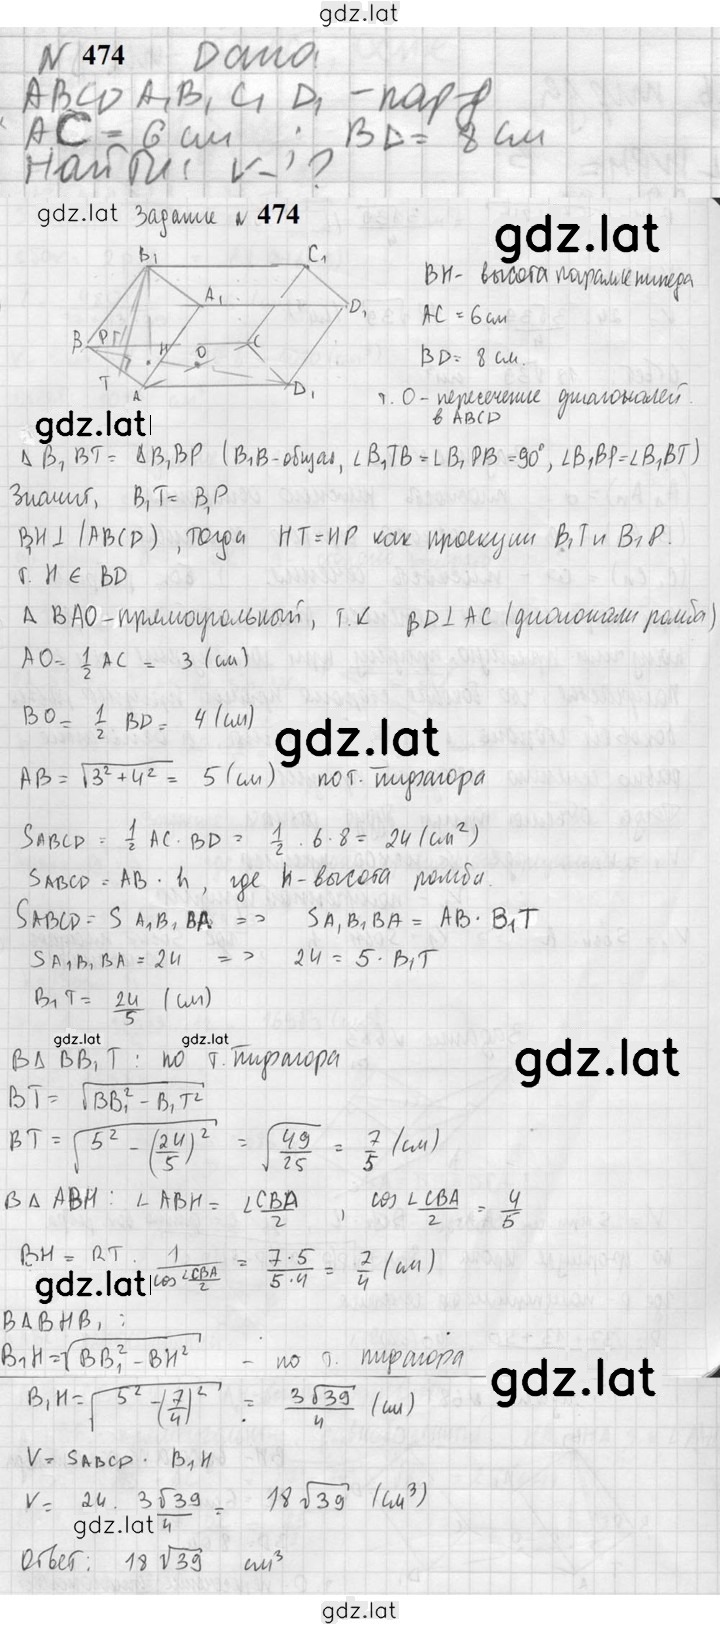 gdz.lat
N 474 Дана
ABCD A₁B₁C₁D₁ - пар-д
AC = 6 см ; BD = 8 см
Найти: V - ?
gdz.lat Задание N 474
gdz.lat
B₁ C₁
A₁ D₁
B P H O C
T A D₁
BH - высота параллепипеда
AC = 6 см
BD = 8 см.
т. O - пересечение диагоналей.
в ABCD
gdz.lat
Δ B₁BT = Δ B₁BP (B₁B - общая, ∠B₁TB = ∠B₁PB = 90°, ∠B₁BP = ∠B₁BT)
Значит, B₁T = B₁P
B₁H ⊥ (ABCD), тогда HT = HP как проекции B₁T и B₁P.
т. H ∈ BD
Δ BAO - прямоугольный, т.к BD ⊥ AC (диагонали ромба)
AO = 1/2 AC = 3 (см)
BO = 1/2 BD = 4 (см)
gdz.lat
AB = √(3² + 4²) = 5 (см) по т. Пифагора
SABCD = 1/2 AC · BD = 1/2 · 6 · 8 = 24 (см²)
SABCD = AB · h, где h - высота ромба.
SABCD = S A₁B₁BA => SA₁B₁BA = AB · B₁T
SA₁B₁BA = 24 => 24 = 5 · B₁T
B₁T = 24/5 (см)
gdz.lat gdz.lat
gdz.lat
В Δ BB₁T : по т. Пифагора
BT = √(BB₁² - B₁T²)
BT = √(5² - (24/5)²) = √(49/25) = 7/5 (см)
В Δ ABH : ∠ABH = ∠CBA/2 , cos ∠CBA/2 = 4/5
BH = BT · 1/(cos ∠CBA/2) = 7·5/5·4 = 7/4 (см)
gdz.lat
В Δ BHB₁ :
B₁H = √(BB₁² - BH²) - по т. пифагора
B₁H = √(5² - (7/4)²) = 3√39/4 (см)
V = SABCD · B₁H
V = 24 · 3√39/4 = 18√39 (см³)
gdz.lat
Ответ: 18√39 см³
gdz.lat